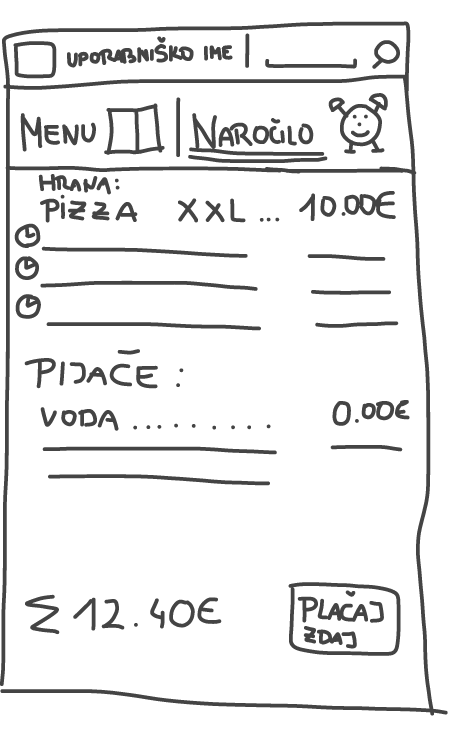 UPORABNIŠKO IME
MENU NAROČILO
HRANA:
PIZZA XXL ... 10.00€
PIJAČE :
VODA ......... 0.00€
Σ 12.40€
PLAČAJ
ZDAJ